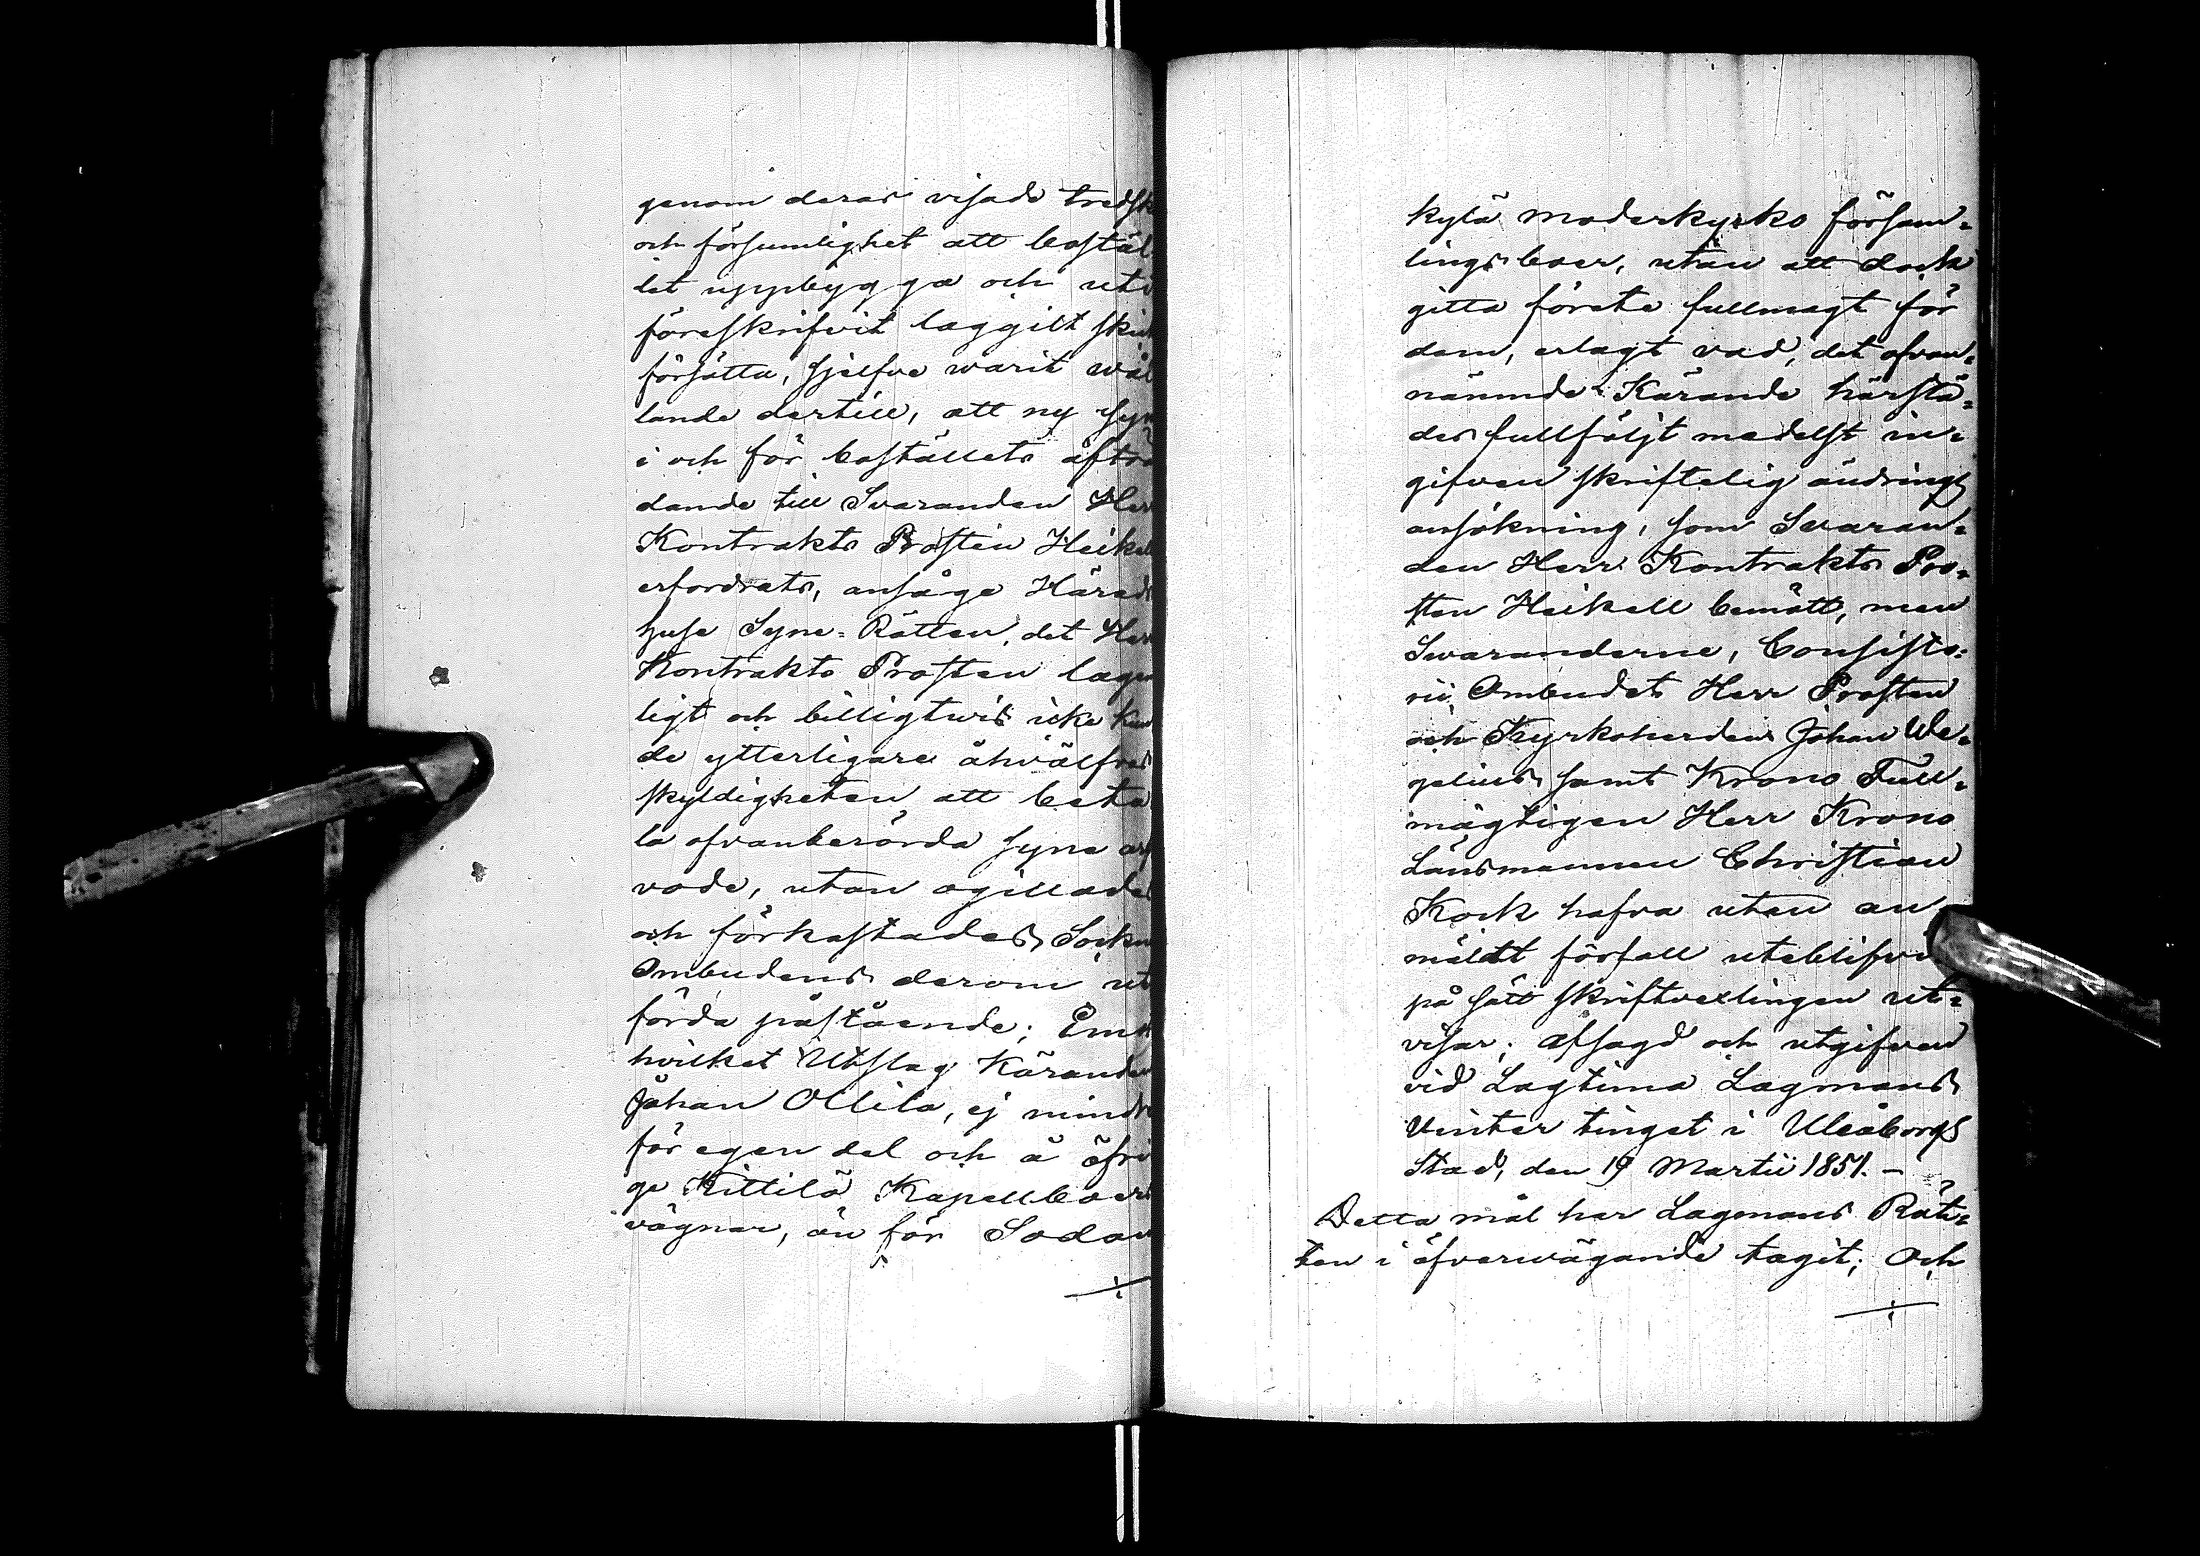 genom deras visade tredsk
och försumlighet att bostäl
let uppbygga och uti
föreskrifvit laggilt skick
försätta, sjelfve warit wål
lande dertill, att ny syn
i och för boställets afträ
dande till Svaranden Herr
Kontrakts Prosten Heikell
erfordrats, ansåge Härads
hufs Syne-Rätten, det Herr
Kontrakts Prosten lagen
ligt och billigtwis icke kun
de ytterligare åhvälfvas
skyldigheten att beta
la ofvanberörda syne ar
vode, utan ogillades
och förkastades Sockne
Ombudens derom ut
förda påstående; Emot
hvilket Utslag Käranden
Johan Ollila, ej mindre
för egen del och å öfri
ga Kittilä Kapellboers
vägnar, än för Sodan
kylä moderkyrko försam=
lingsboer, utan att dock
gitta förete fullmagt för
dem, erlagt vad, det ofvan=
nämnde Kärande härstä=
des fullföljt medelst in=
gifven skriftelig ändrings
ansökning, som Svaran=
den Herr Kontrakts Pro=
sten Heikell bemött, men
Svaranderne, Consisto=
rii Ombudet Herr Prosten
och Kyrkoherden Johan We=
gelius samt Krono Full=
mägtigen Herr Krono
Länsmannen Christian
Kock hafva utan an
mäldt förfall uteblifvi
på sätt skriftvexlingen ut=
visar; afsagd och utgifven
vid Lagtima Lagmans
Vinter tinget i Uleåborgs
Stad, den 19 Martii 1851. -
Detta mål har Lagmans Rät=
ten i öfverwägande tagit; Och